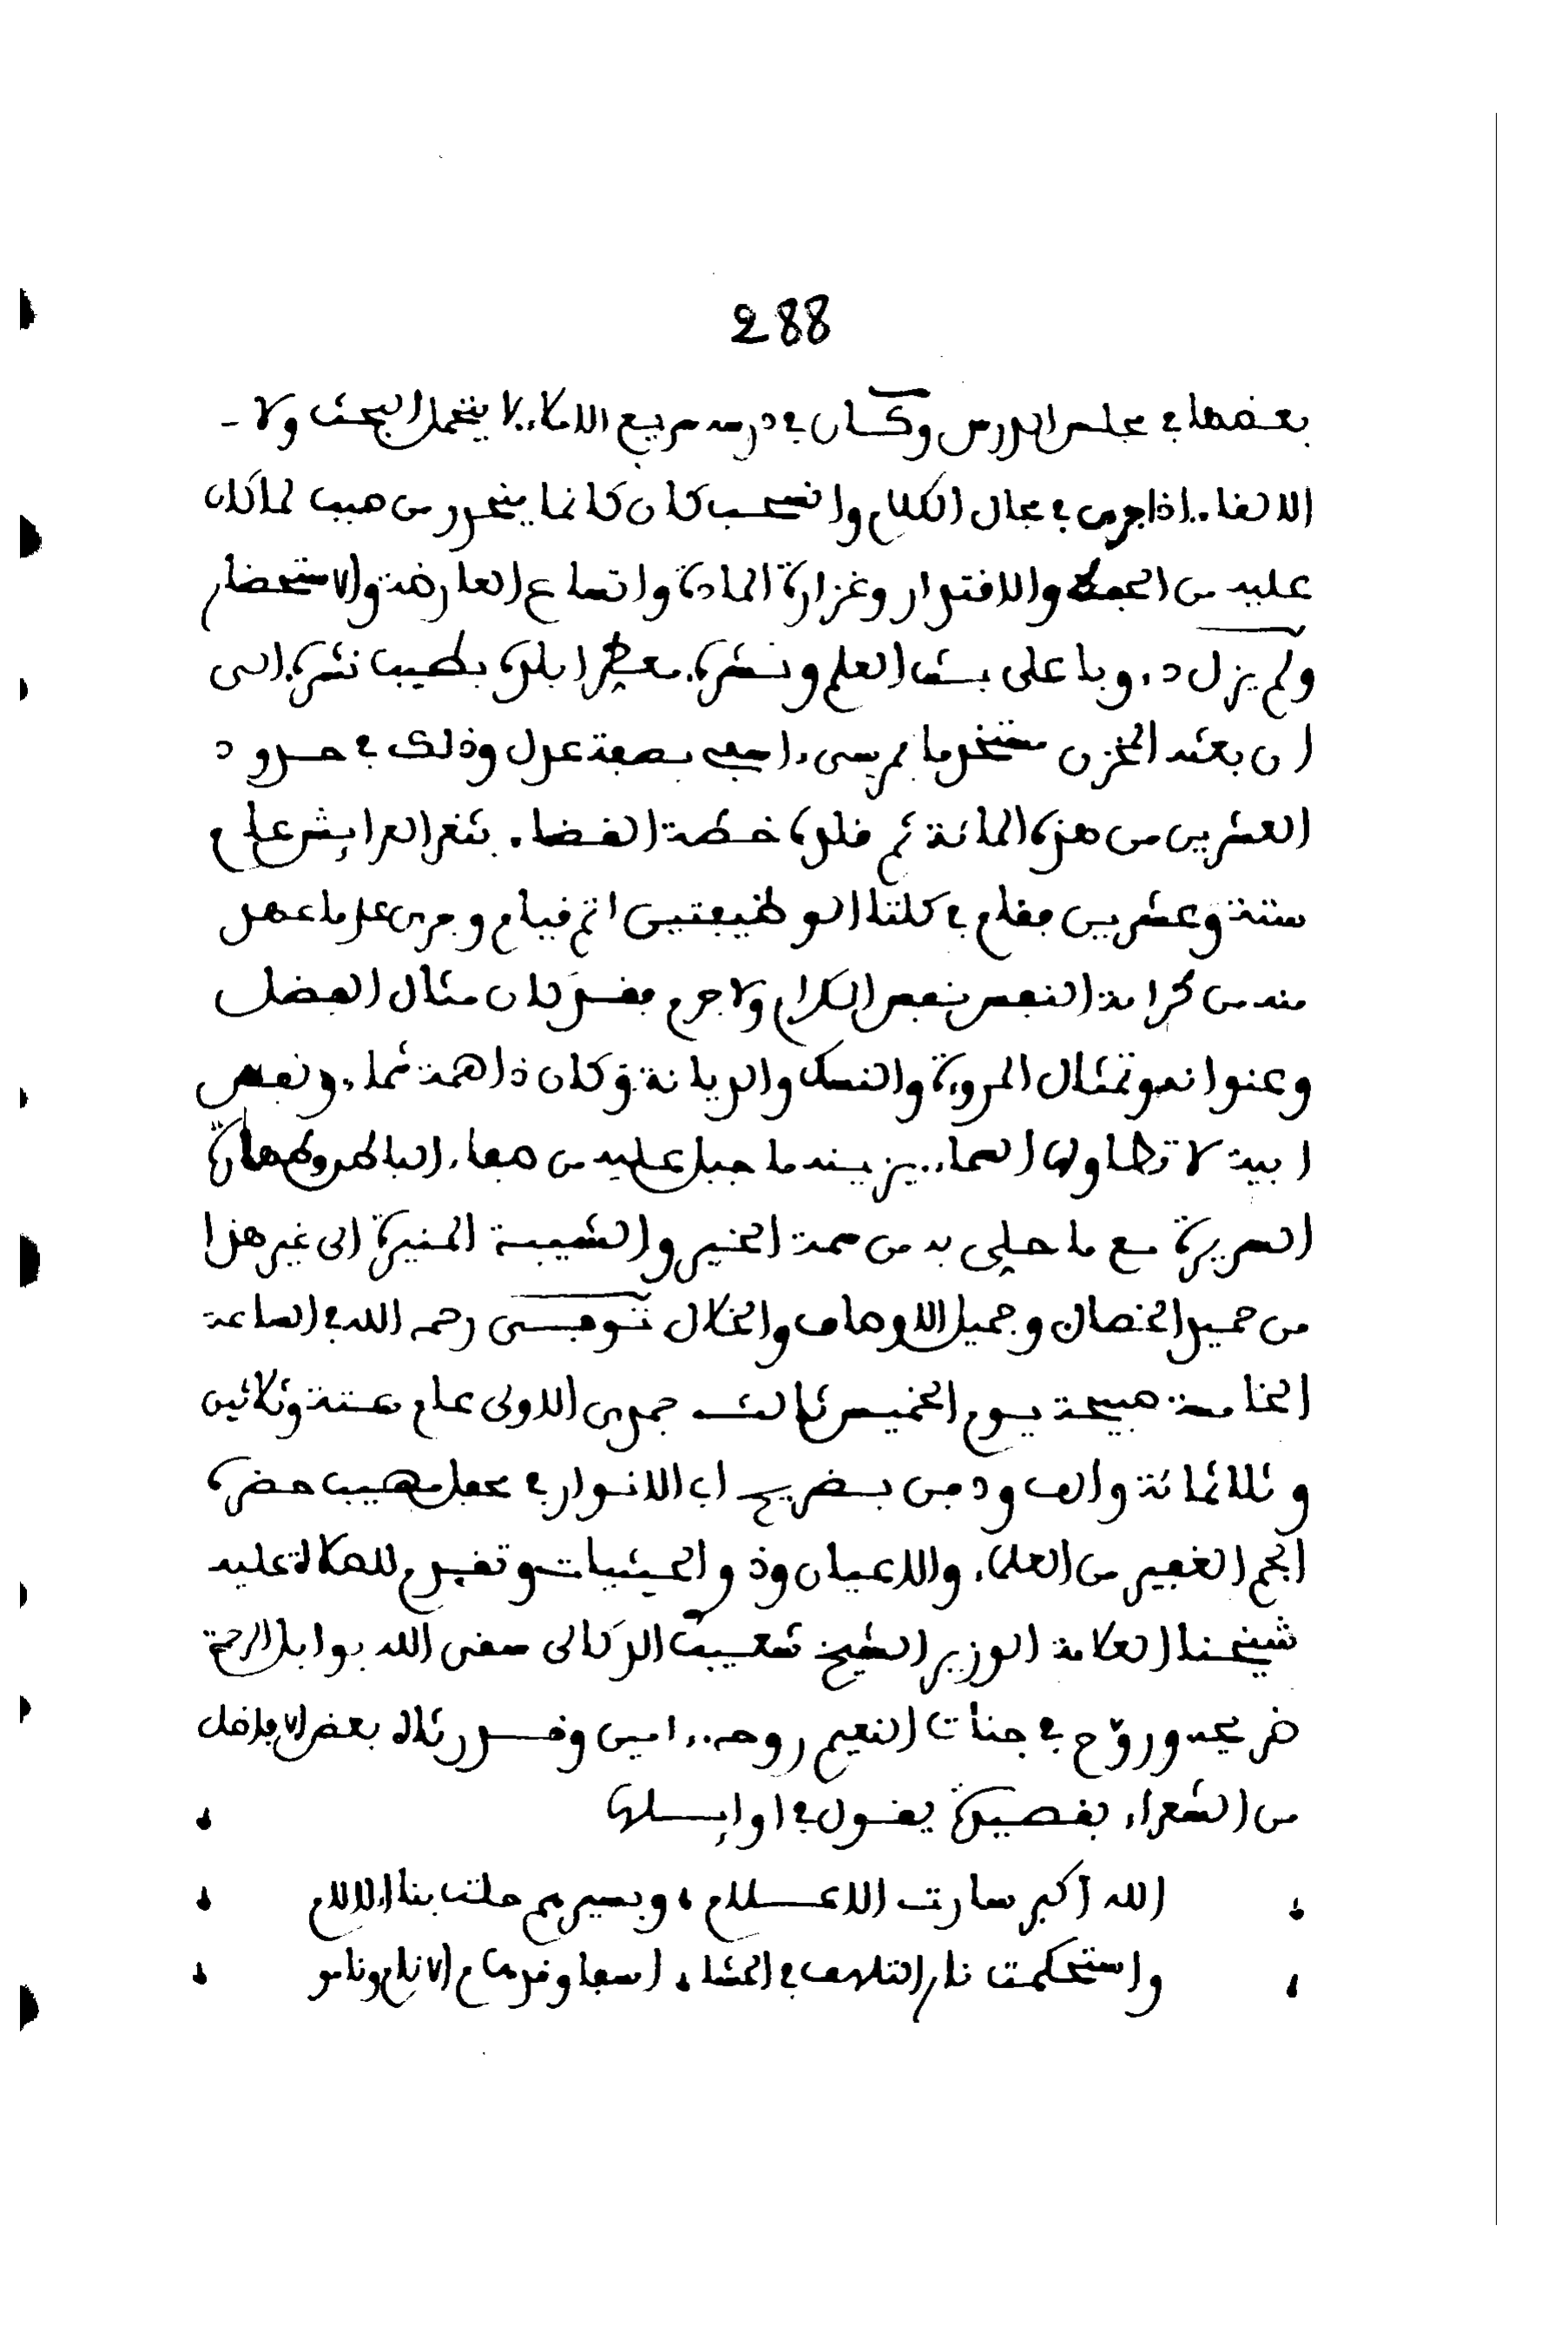 288
بعضها في مجلس الدرس وكان في درسه سريع الاملاء لا يتحمل البحث ولا
الالقاء اذا جرى في مجال الكلام وانسحب كان كانما ينحدر من صبب لما كان
عليه من الحفظ والاقتدار وغزارة المادة واتساع العارضة والاستحضار
ولم يزل دءوبا على بث العلم ونشره معطرا بلده بطيب نشره الى
ان بعثه المخزن مستخدما بمرسى ءاسفي بصفة عدل وذلك في حدود
العشرين من هذه المائة ثم قلده خطة القضاء بثغر العرايش عام
ستة وعشرين فقام في كلتا الوظيفتين اتم قيام وجرى على ما عهد
منه من كرامة النفس نفس الكرام ولا جرم فقد كان مثال الفضل
وعنوانه وتمثال المروءة والنسك والديانة وكان ذا همة شماء ونفس
ابية لا تطاولها السماء يزينه ما جبل عليه من صفاء الباطن وطهارة
السريرة مع ما حلي به من سمة الخير والشيبة المنيرة الى غير هذا
من حميد الخصال وجميل الاوصاف والخلال توفى رحمه الله في الساعة
الخامسة صبيحة يوم الخميس ثالث جمدى الاولى عام ستة وثلاثين
وثلاثمائة والف ودفن بضريح اب الانوار في محفل مهيب حضره
الجم الغفير من العلماء والاعيان وذو الحيثيات وتقدم للصلاة عليه
شيخنا العلامة الوزير الشيخ شعيب الدكالى سقى الله بوابل الرحمة
ضريحه وروّح في جنات النعيم روحه ءامين وقد رثاه بعض الافاضل
من الشعراء بقصيدة يقول في اوايلها
الله أكبر سارت الاعلام وبسيرهم حلت بنا الالام
واستحكمت نار التلهف في الحشا اسفا وقد ضاع الانام وناموا